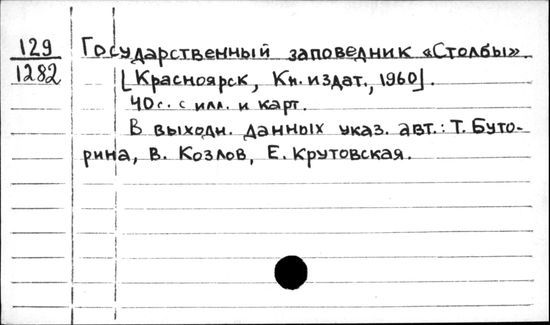 129
1282
Государственный заповедник «Столбы».
[Красноярск, Кн. издат., 1960].
40 с. с илл. и карт.
В выходн. данных указ. авт.: Т. Буто-
рина, В. Козлов, Е. Крутовская.